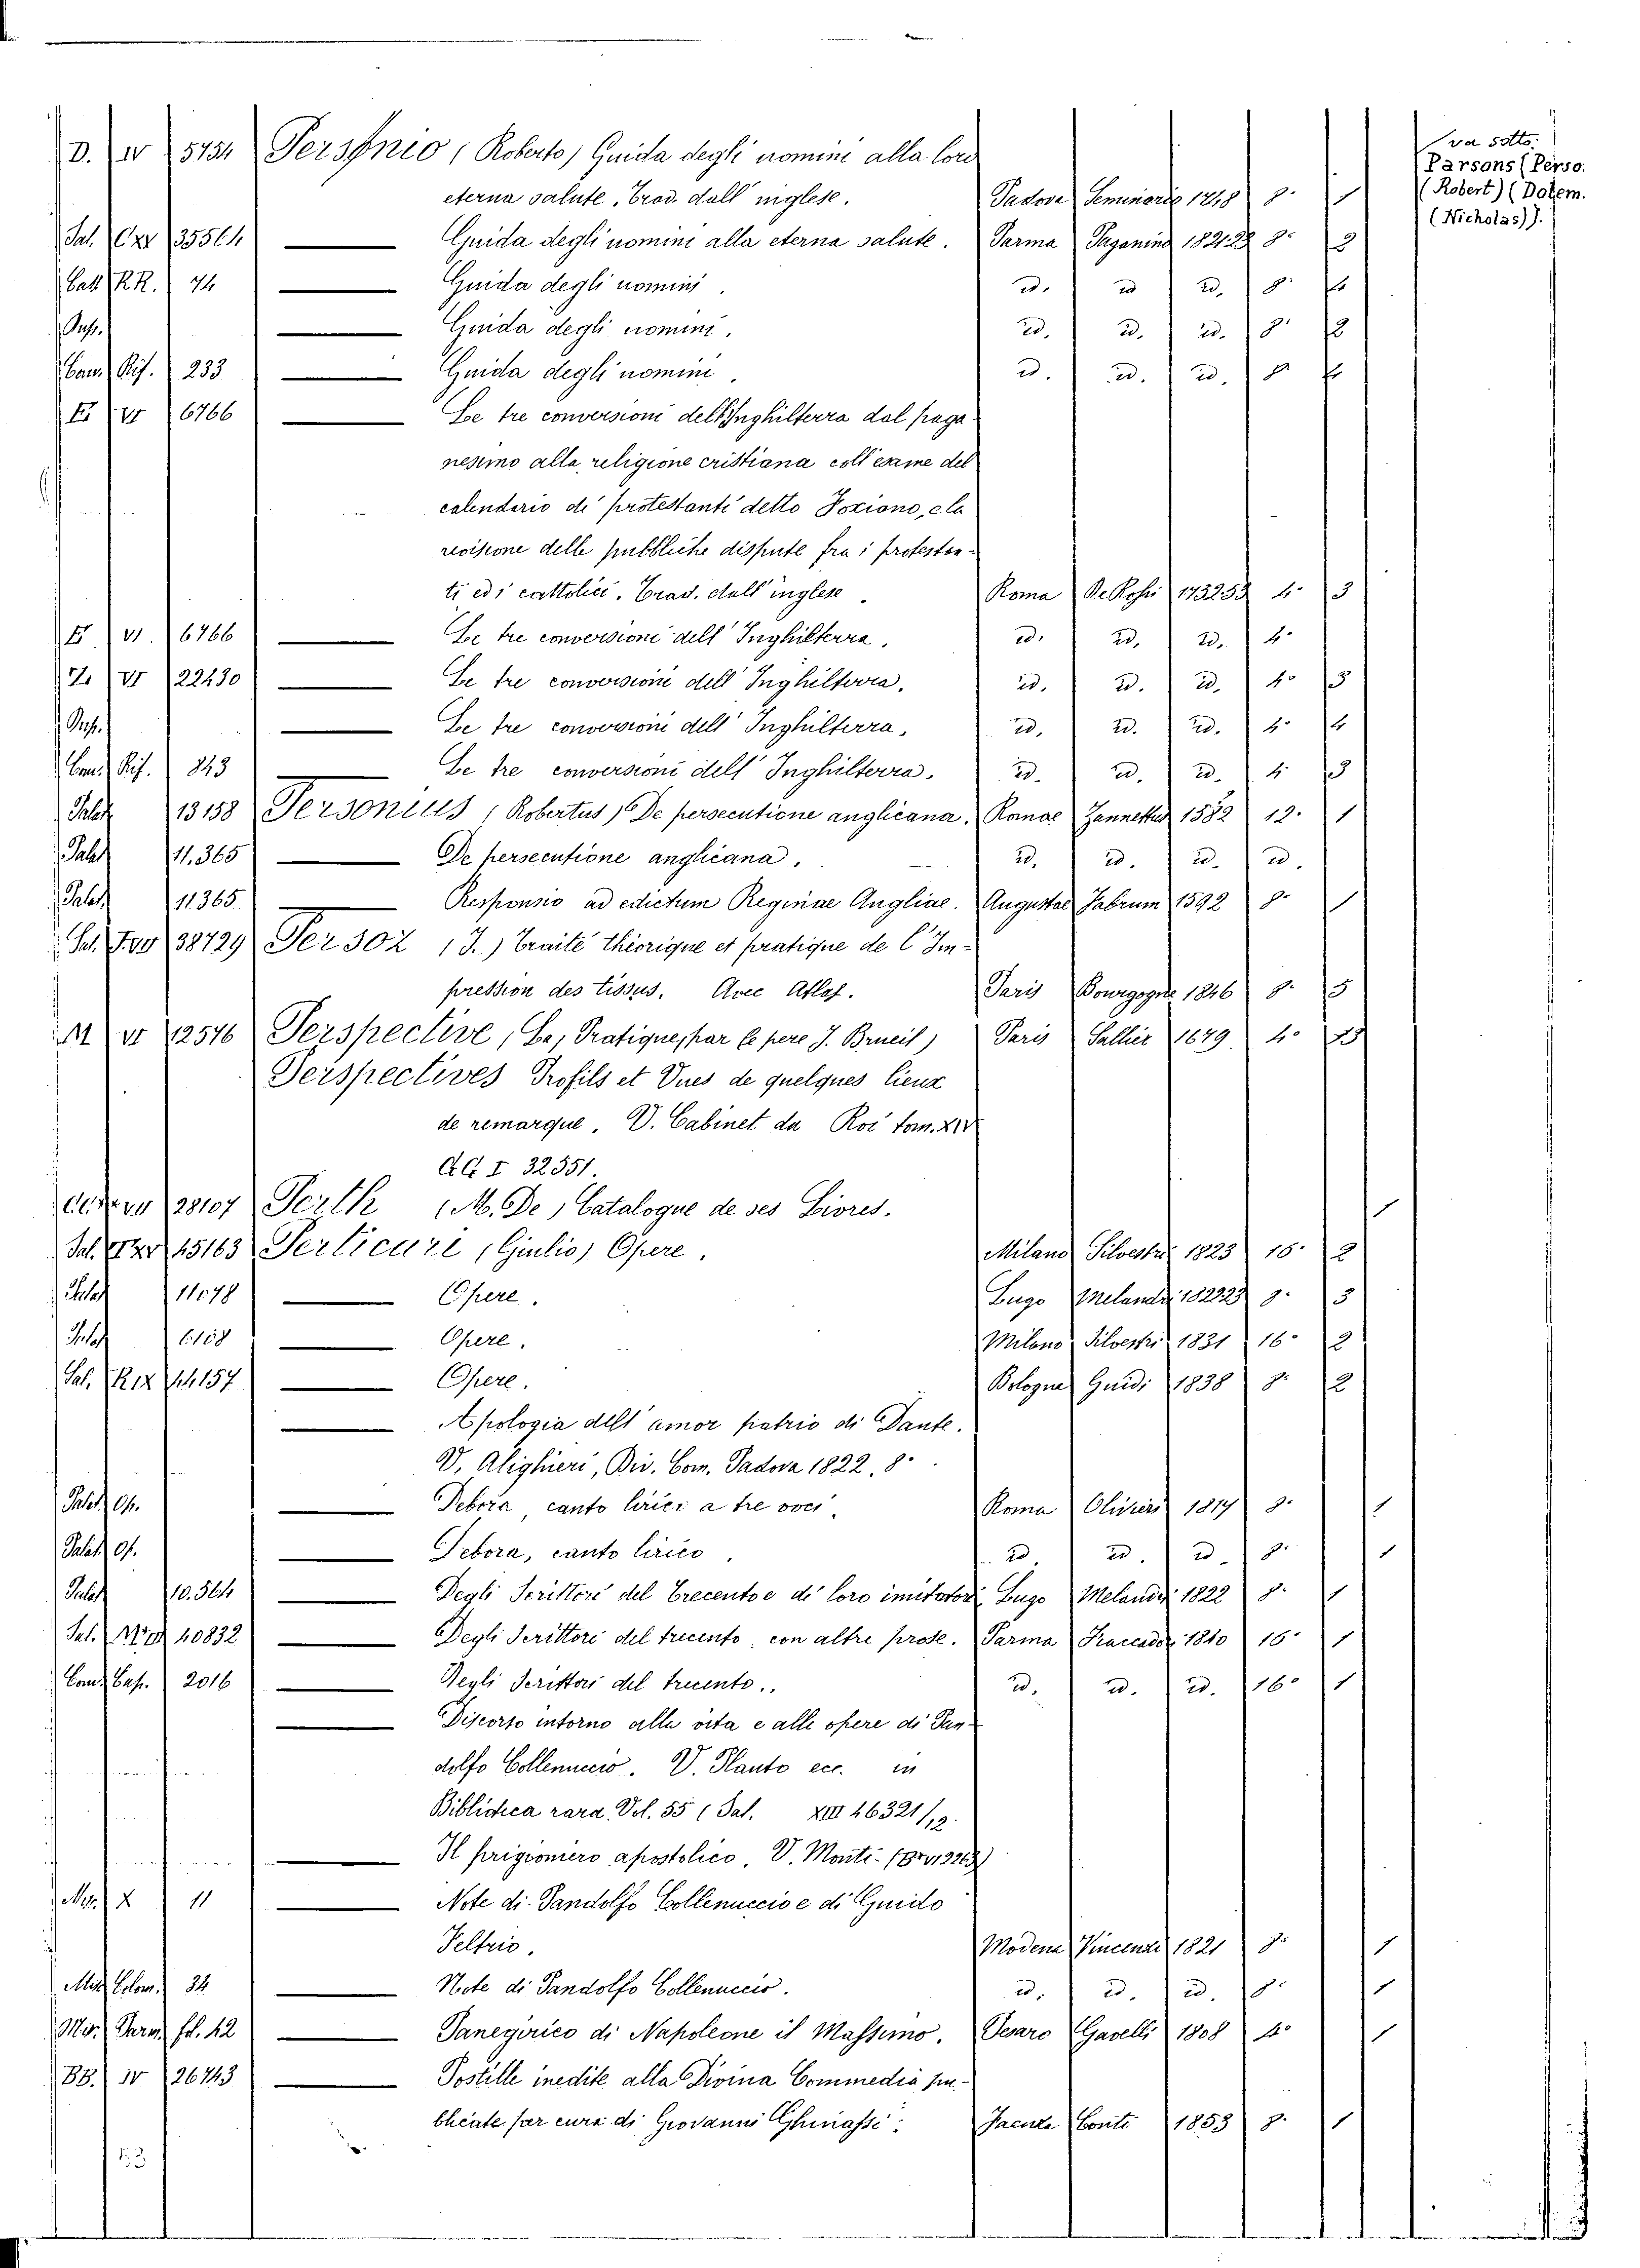 va sotto:
Parsons (Perso.
(Robert) (Dolem.
(Nicholas)).
D. IV 5754 Personio (Roberto) Guida degli uomini alla loro
eterna salute, Trad. dall' inglese. Padova Seminario 1748 8° 1
Sal. 35564 — Guida degli uomini alla eterna salute. Parma Paganino 1821.22 8° 2
Catt RR. 74 — Guida degli uomini. id. id id. 8°
— Guida degli uomini. id. id. id. 8° 2
Cam. Rif. 233 — Guida degli uomini. id. id. id. 8
E VI 6766 — Le tre conversioni dell'Inghilterra dal paga-
nesimo alla religione cristiana coll' esame del
calendario de protestanti detto Foxiano, e la
revisione delle pubbliche dispute fra i protestan-
ti ed i cattolici. Trad. dall' inglese. Roma De Rossi 1752.53 4° 3
E VI. 6766 — Le tre conversioni dell' Inghilterra. id. id. id. 4°
Z. VI 22430 — Le tre conversioni dell' Inghilterra. id. id. id. 4° 3
— Le tre conversioni dell' Inghilterra. id. id. id. 4° 4
Cam. Rif. 243 — Le tre conversioni dell' Inghilterra. id. id. id. 4° 3
Palat 13158 Personius (Robertus) De persecutione anglicana. Romae Zannettus 1582 12. 1
Palat 11.365 — De persecutione anglicana. id. id. id. id.
Palat 11365 — Responsio ad edictum Reginae Angliae. Augustae Fabrum 1592 8° 1
Sal. 38729 Persoz (J.) Traité théorique et pratique de l'Im-
pression des tissus. Avec Atlas. Paris Bourgogne 1846 8° 5
M VI 12576 Perspective (La) Pratique, par le pere J. Brueil) Paris Sallier 1679 4°
Perspectives Profils et Vues de quelques lieux
de remarque. V. Cabinet du Roi tom. XIV
I 32551.
28107 Perth (M. De) Catalogue de ses Livres. 1
Sal. 45163 Perticari (Giulio) Opere. Milano Silvestri 1823 16° 2
Palat 11078 — Opere. Lugo Melandri 1822.23 8° 3
Palat 6108 — Opere. Milano Silvestri 1831 16° 2
Sal. RIX 44157 — Opere. Bologna Guidi 1838 8° 2
— Apologia dell' amor patrio di Dante.
V. Alighieri, Div. Com. Padova 1822. 8°.
Palat Op. — Debora, canto lirico a tre voci. Roma Olivieri 1817 8° 1
Palat Op. — Debora, canto lirico. id. id. id. 8° 1
Palat 10.564 — Degli Scrittori del Trecento e de' loro imitatori Lugo Melandri 1822 8° 1
Sal. 40832 — Degli Scrittori del trecento, con altre prose. Parma Fiaccadori 1840 16° 1
Cam. Cap. 2016 — Degli Scrittori del trecento. id. id. id. 16° 1
— Discorso intorno alla vita e alle opere di Pan-
dolfo Collenuccio. V. Plauto ecc. in
Biblioteca rara Vol. 55 (Sal. XIII 46321/12.
— Il prigioniero apostolico. V. Monti.
Misc. X 11 — Note di Pandolfo Collenuccio e di Guido
Peltrio. Modena Vincenzi 1821 8° 1
Misc. Colom. 34 — Note di Pandolfo Collenuccio. id. id. id. 8° 1
Misc. Parm. fol. 42 — Panegirico di Napoleone il Massimo. Pesaro Gavelli 1808 4° 1
BB. IV 26743 — Postille inedite alla Divina Commedia pu-
blicate per cura di Giovanni Ghinassi. Faenza Conti 1853 8° 1